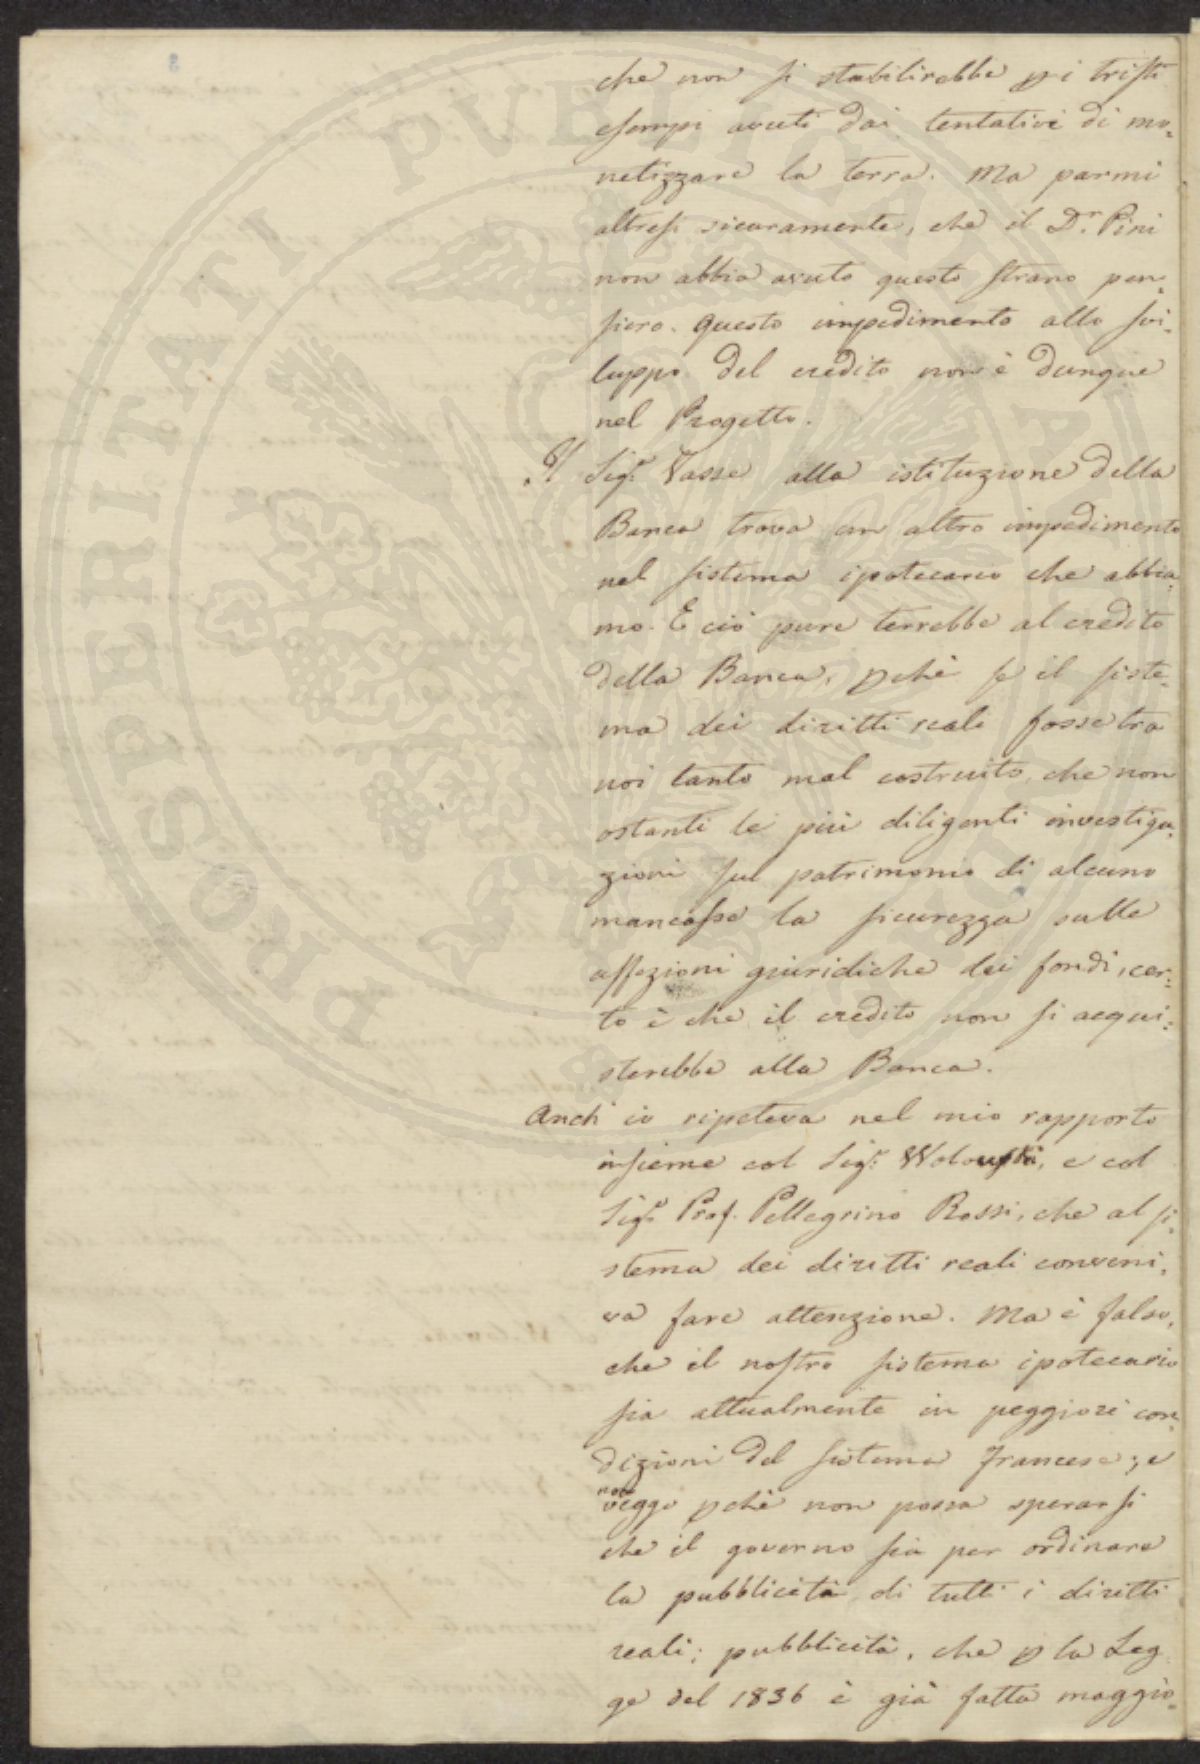 che non si stabilirebbe p i tristi
esempi avuti dai tentativi di mo„
netizzare la terra. Ma parmi
altresi sicuramente, che il Dr. Pini
non abbia avuto questo strano pen„
siero. Questo impedimento allo svi„
luppo del credito non è dunque
nel Progetto.
Il Sigr. Vasse alla istituzione della
Banca trova un altro impedimento
nel sistema ipotecario che abbia„
mo. E ciò pure terrebbe al credito
della Banca, pchè se il siste„
ma dei diritti reali fosse tra
noi tanto mal costruito, che non
ostanti le più diligenti investiga„
zioni sul patrimonio di alcuno
mancasse la sicurezza sulle
affezioni giuridiche dei fondi, cer„
to è che il credito non si acqui„
sterebbe alla Banca.
Anch' io ripeteva nel mio rapporto
insieme col Sigr. Wolowski, e col
Sigr. Prof. Pellegrino Rossi, che al si„
stema dei diritti reali conveni„
va fare attenzione. Ma è falso,
che il nostro sistema ipotecario
sia attualmente in peggiori con„
dizioni del sistema Francese; e
non
veggo pchè non possa sperarsi
che il governo sia per ordinare
la pubblicità di tutti i diritti
reali; pubblicità, che p la Leg
ge del 1836 è già fatta maggio„
PROSPERITATI PUBLICAE AUGENDAE